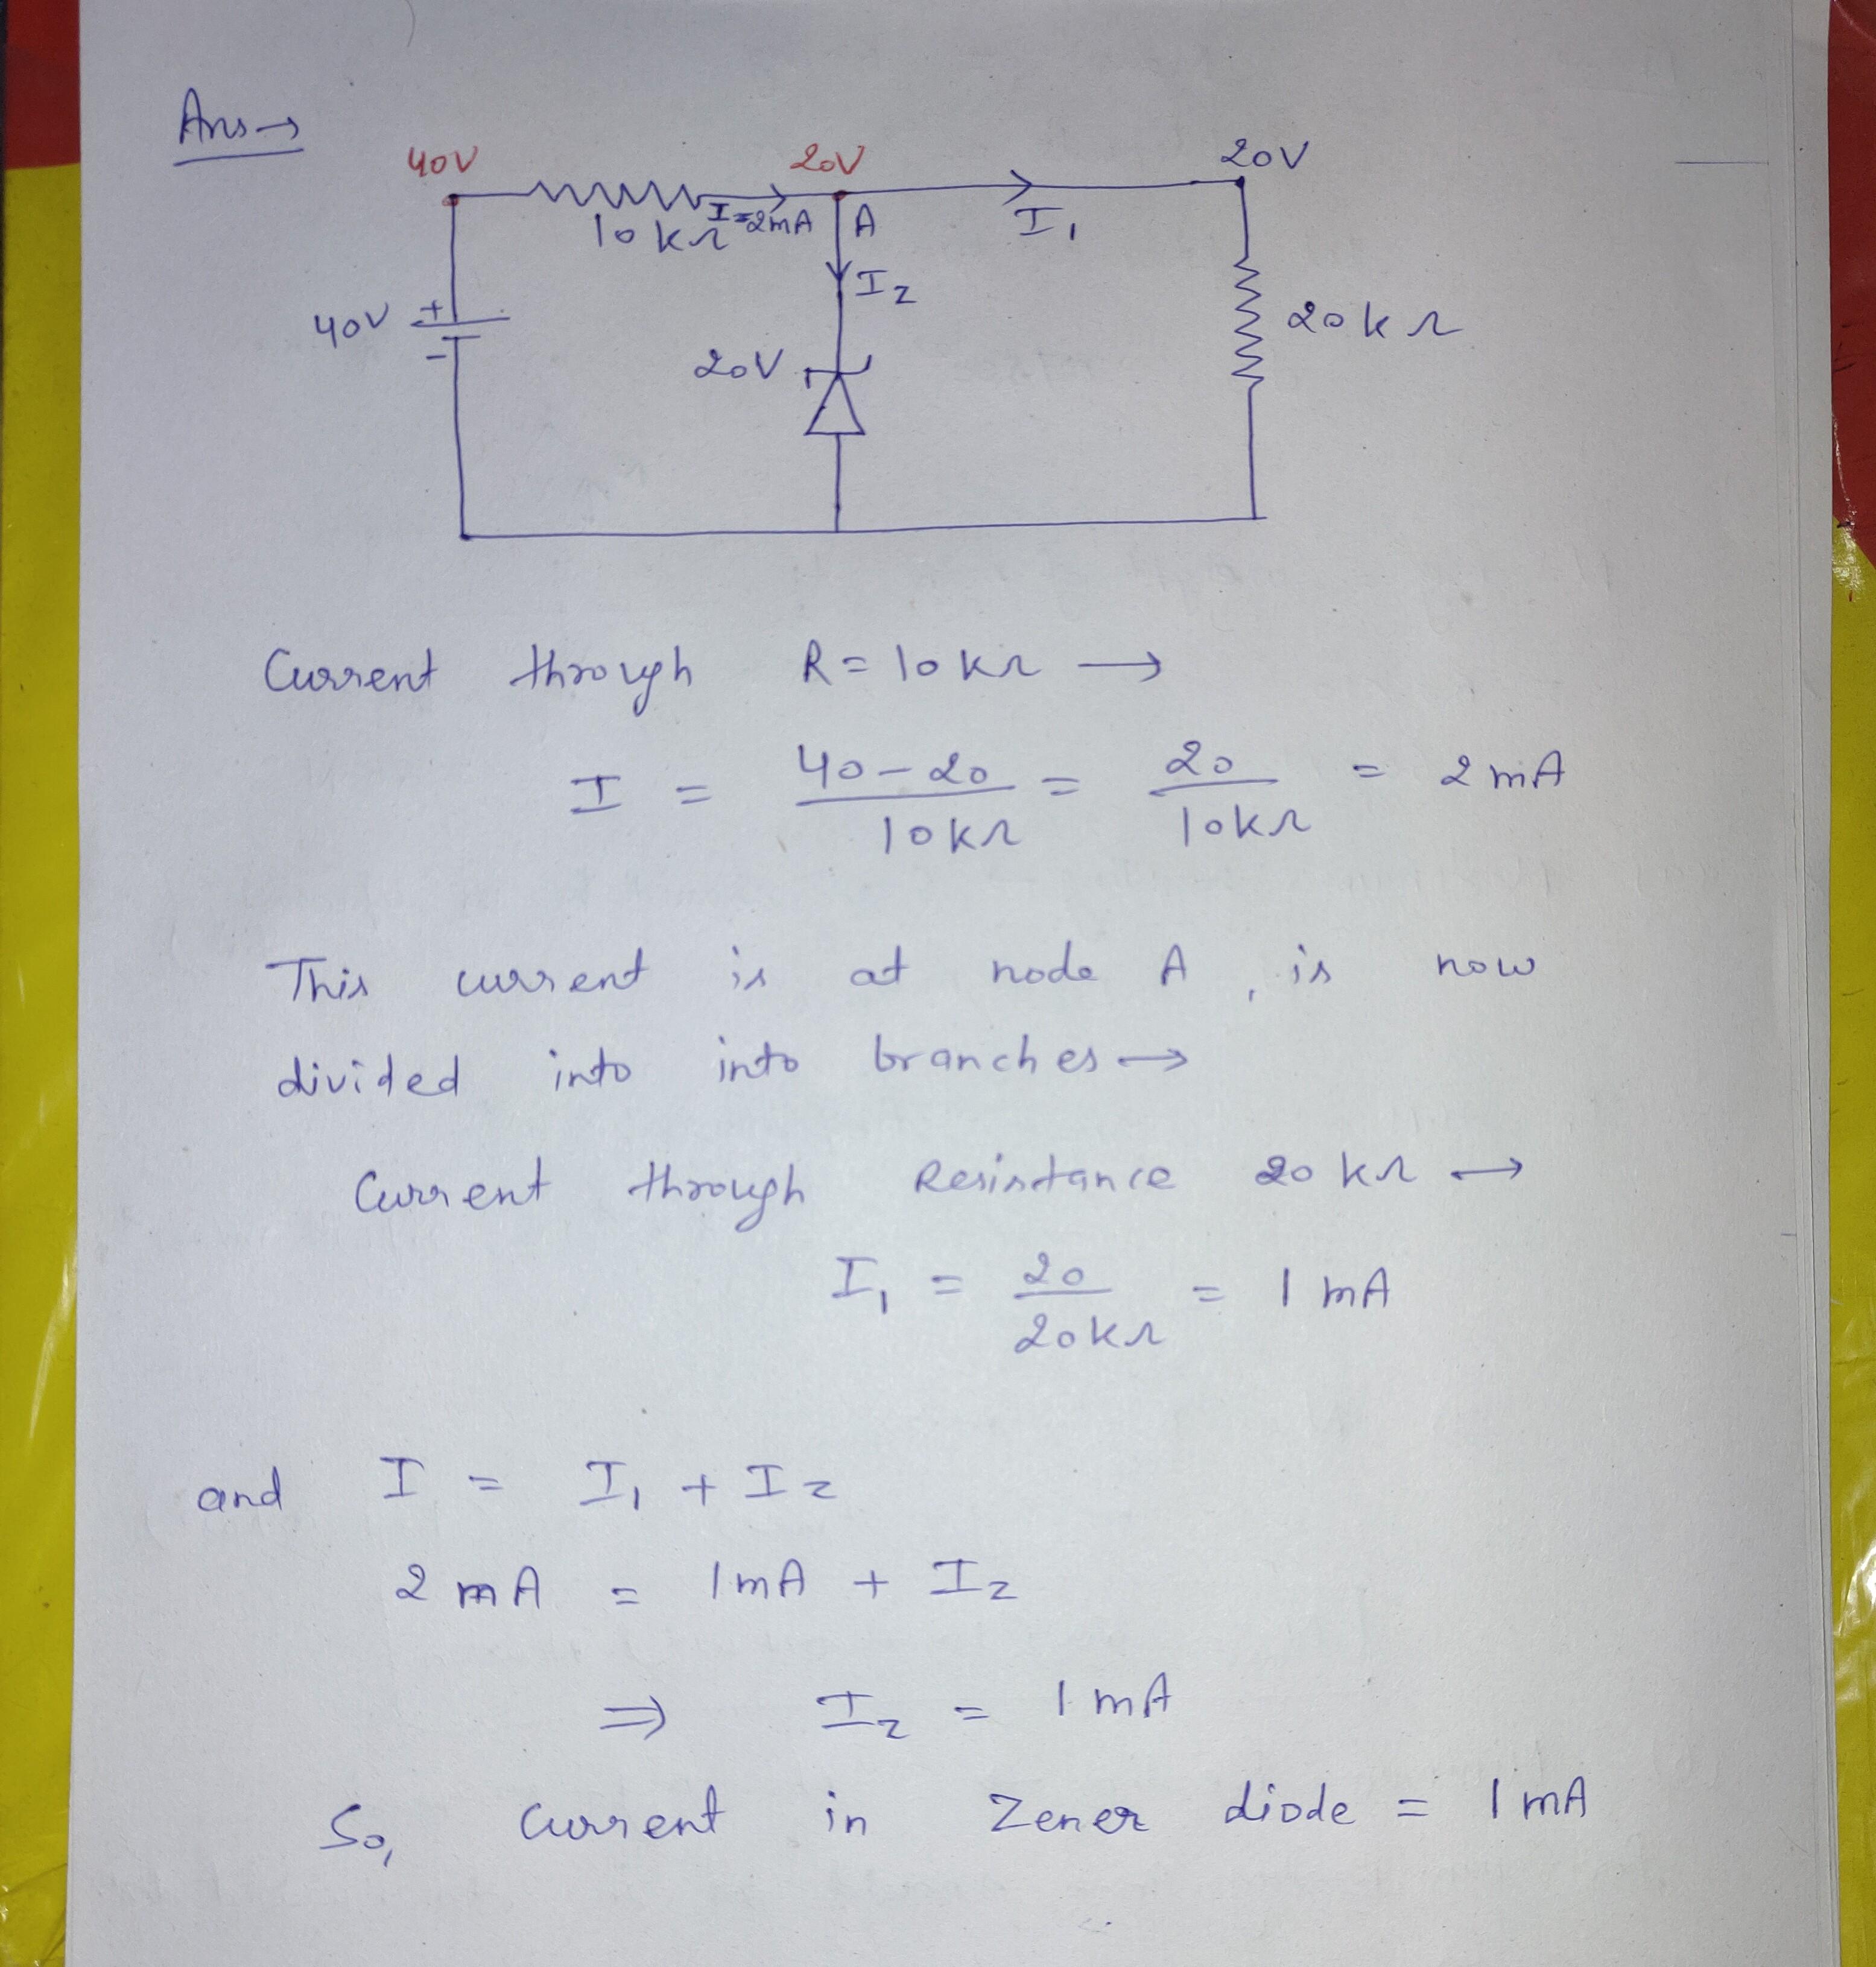 Ans →
40V 20V 20V
10 kΩ I=2mA A I₁
I₂
40V + 20kΩ
-
20V
Current through R = 10 kΩ →
I = 40-20 / 10kΩ = 20 / 10kΩ = 2 mA
This current is at node A, is now
divided into into branches →
Current through Resistance 20 kΩ →
I₁ = 20 / 20kΩ = 1 mA
and I = I₁ + I₂
2 mA = 1mA + I₂
⇒ I₂ = 1 mA
So, current in Zener diode = 1 mA